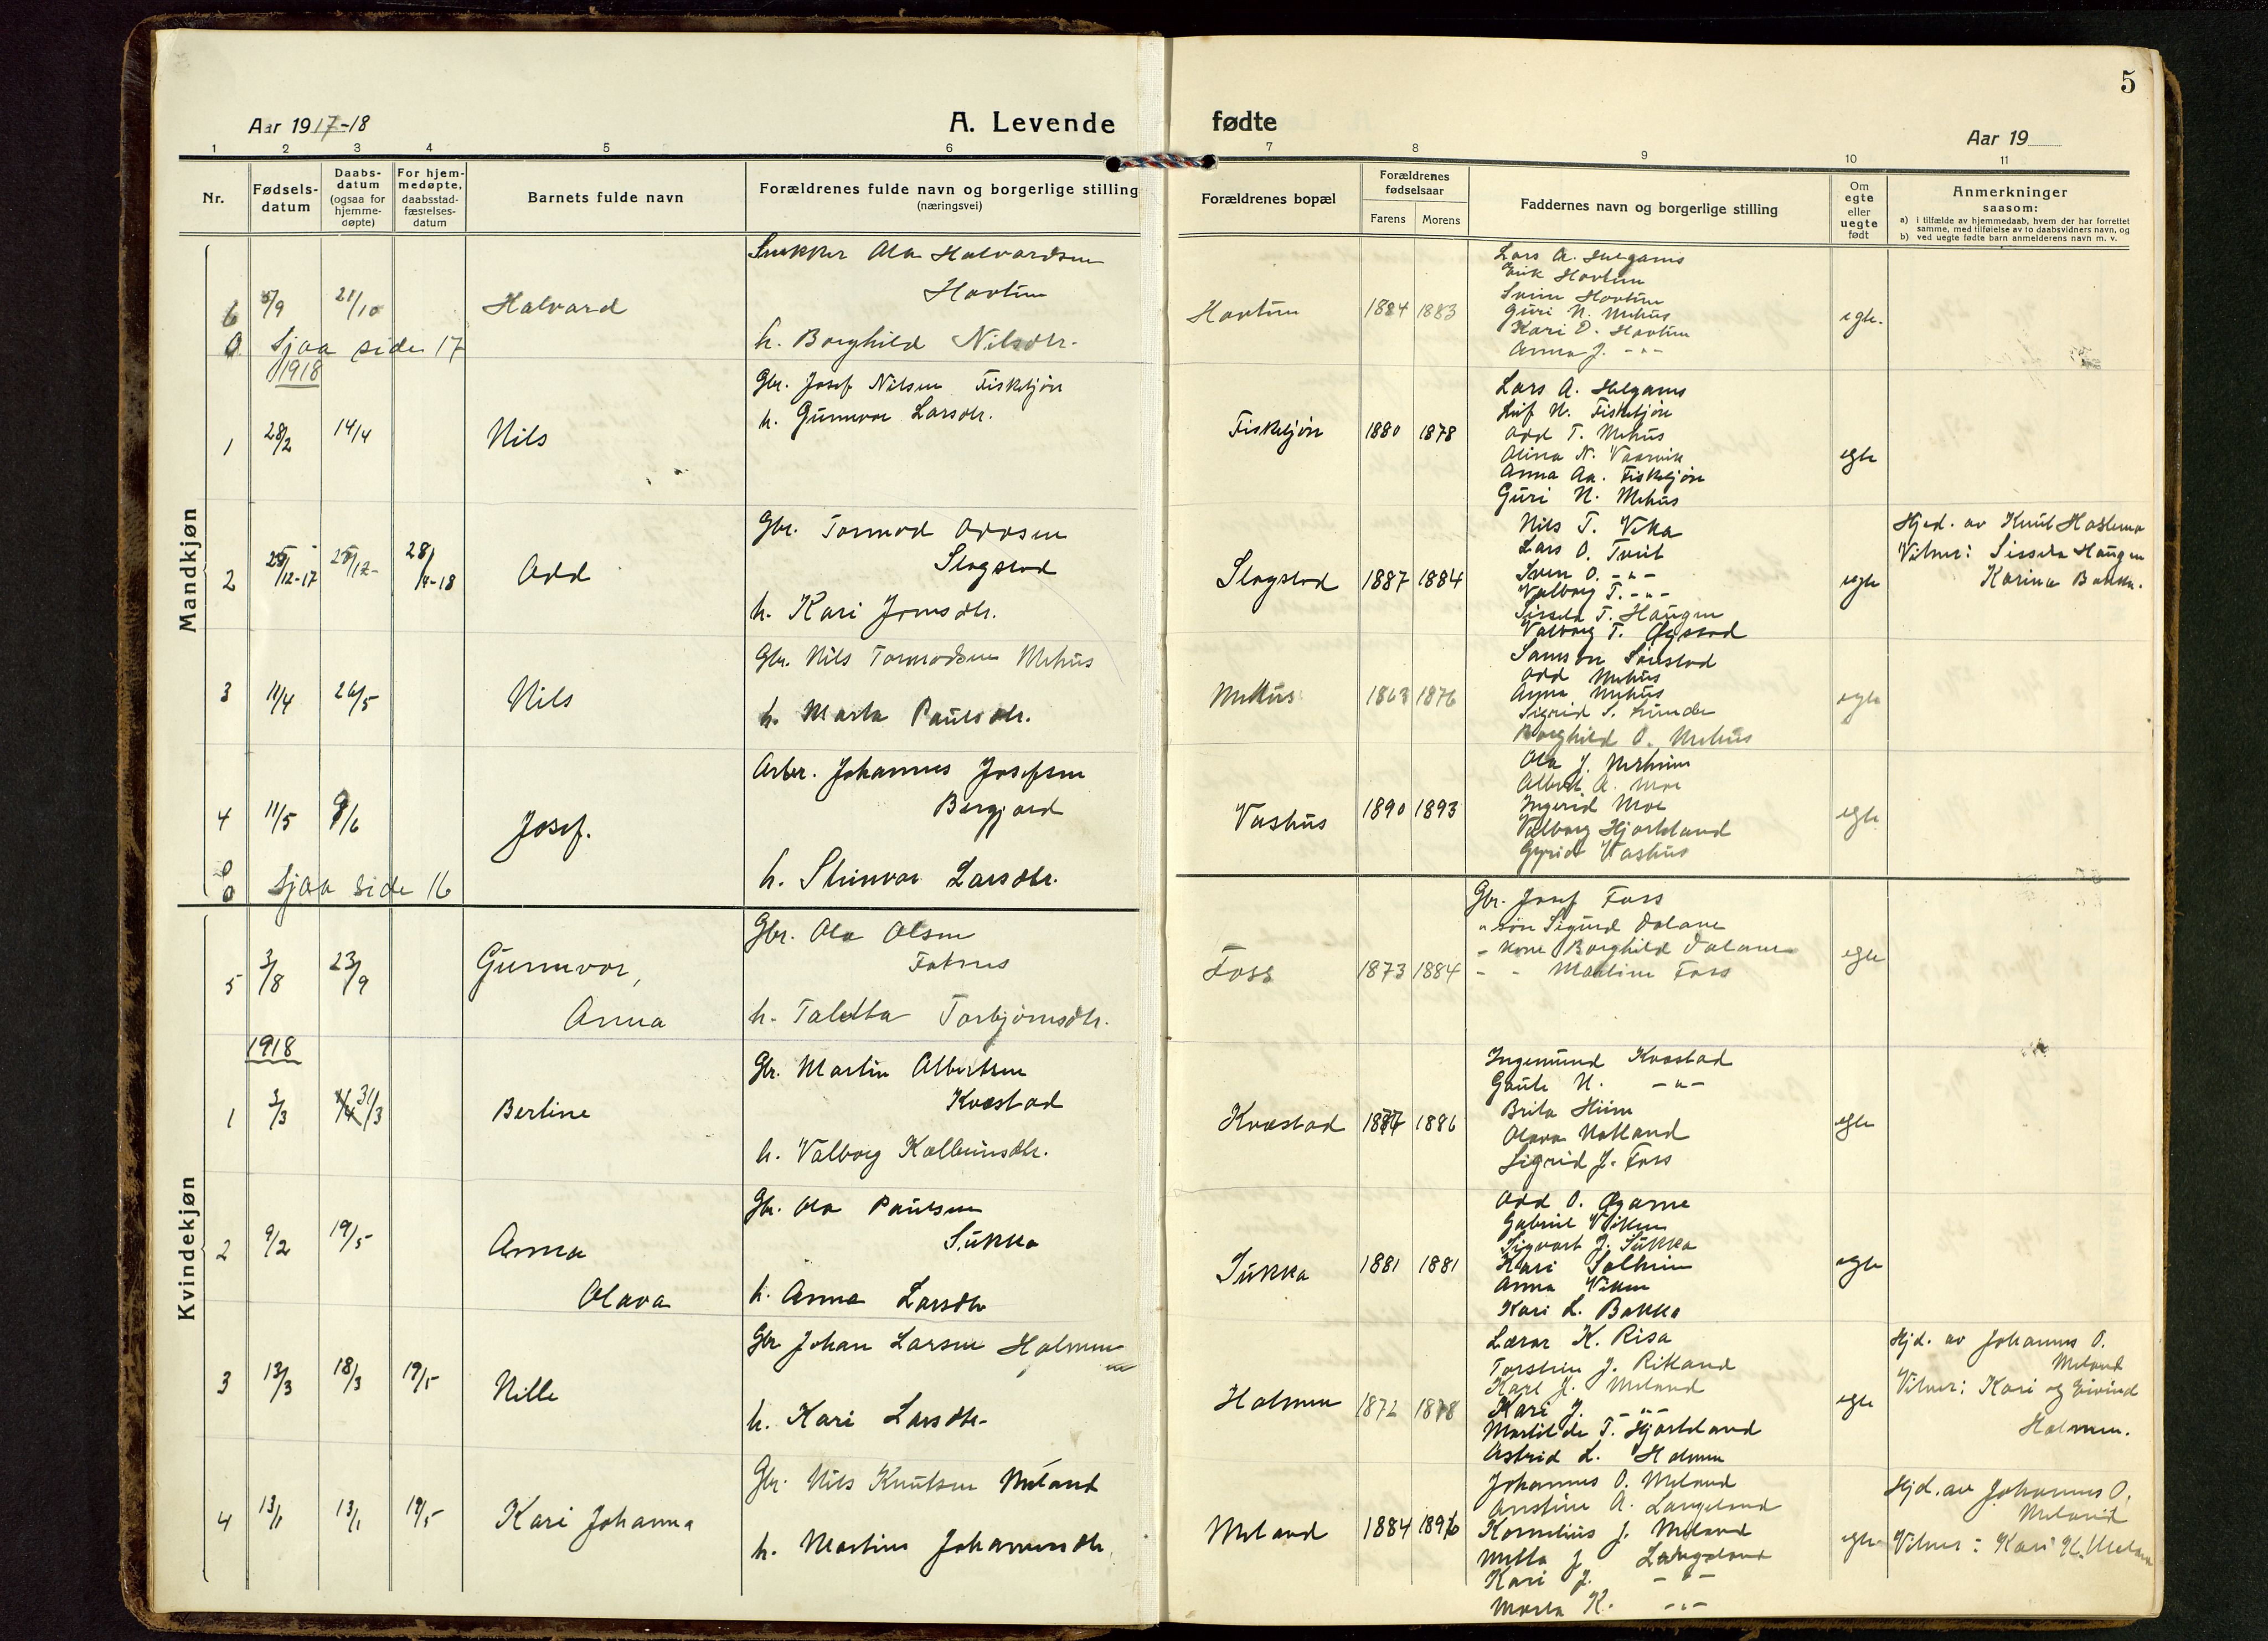 5
Aar 1917-18
A. Levende
fødte
Aar 19
1 2 3 4 5 6 7 8 9 10 11
Nr.
Fødsels-
datum
Daabs-
datum
(ogsaa for
hjemme-
døpte)
For hjem-
medøpte,
daabsstad-
fæstelses-
datum
Barnets fulde navn
Forældrenes fulde navn og borgerlige stilling
(næringsvei)
Forældrenes bopæl
Forældrenes
fødselsaar
Farens Morens
Faddernes navn og borgerlige stilling
Om
egte
eller
uegte
født
Anmerkninger
saasom:
a) i tilfælde av hjemmedaab, hvem der har forrettet
samme, med tilføielse av to daabsvidners navn, og
b) ved uegte fødte barn anmelderens navn m. v.
Mandkjøn
6 5/9 21/10 Halvard
Snekker Ola Halvardsen
Hovtun
h. Borghild Nilsdtr.
Hovtun 1884 1883
Lars A. Helganes
Erik Hovtun
Svein Hovtun
Guri N. Mehus
Kari O. Hovtun
Anna J. -"-
egte.
Sjaa side 17
1918
1 28/2 14/4 Nils
Gbr. Josef Nilsen Fisketjøn
h. Gunnvor Larsdtr.
Fisketjøn 1880 1878
Lars A. Helganes
Leif N. Fisketjøn
Odd T. Mehus
Olina N. Vaarvik
Anna Aa. Fisketjøn
Guri N. Mehus
egte
2 25/12-17 25/12- 28/4-18 Odd
Gbr. Tormod Oddsen
Slogstad
h. Kari Jonsdtr.
Slogstad 1887 1884
Nils T. Veka
Lars O. Tveit
Sven O. -"-
Valborg T. -"-
Sissela T. Haugen
Valborg T. Øgstad
egte
Hjed. av Knut Hastema
Vitner: Sissela Haugen
Karina Bakka.
3 11/4 26/5 Nils
Gbr. Nils Tormodsen Mehus
h. Marta Paulsdtr.
Mehus 1863 1876
Samson Sønstad
Odd Mehus
Anna Mehus
Sigrid S. Lunde
Borghild O. Mehus
egte
4 11/5 9/6 Josef.
Arber. Johannes Josefsen
Bergjord
h. Steinvor Larsdtr.
Vashus 1890 1893
Ola J. Mæheim
Albert A. Moe
Ingerid Moe
Valborg Hjorteland
Gyrid Vashus
egte
Sjaa side 16
Kvindekjøn
5 3/8 23/9 Gunnvor,
Anna
Gbr. Ola Olsen
Fatnes
h. Taletta Torbjørnsdtr.
Foss 1873 1884
Gbr. Josef Foss
" søn Sigurd Dalane
- kone Borghild Dalane
- - Martine Foss
egte
1918
1 3/3 31/3 Berline
Gbr. Martin Albertsen
Kvæstad
h. Valborg Kolbeinsdtr.
Kvæstad 1877 1886
Ingemund Kvæstad
Gaute N. -"-
Brita Hiim
Olava Natland
Sigrid J. Foss
egte
2 9/2 19/5 Anna
Olava
Gbr. Ola Paulsen
Sukka
h. Anna Larsdtr
Sukka 1881 1881
Odd O. Øgarne
Gabriel Viken
Sigvart J. Sukka
Kari Solheim
Anna Viken
Kari L. Bakka
egte
3 13/3 18/3 19/5 Nille
Gbr Johan Larsen Holmen
h. Kari Larsdtr-
Holmen 1872 1878
Lærar K. Risa
Torstein J. Ritland
Karl J. Meland
Kari J. -"-
Martilde T. Hjorteland
Astrid L. Holmen
egte
Hjd. av Johannes O.
Meland
Vitner: Kari og Eivind
Holmen.
4 13/1 13/1 19/5 Kari Johanna
Gbr. Nils Knutsen Meland
h. Martine Johannesdtr.
Meland 1884 1896
Johannes O. Meland
Anstine A. Langeland
Kornelius J. Meland
Metta J. Langeland
Kari J. -"-
Marta K. -"-
egte
Hjd. av Johannes O.
Meland
Vitner: Kari K. Meland